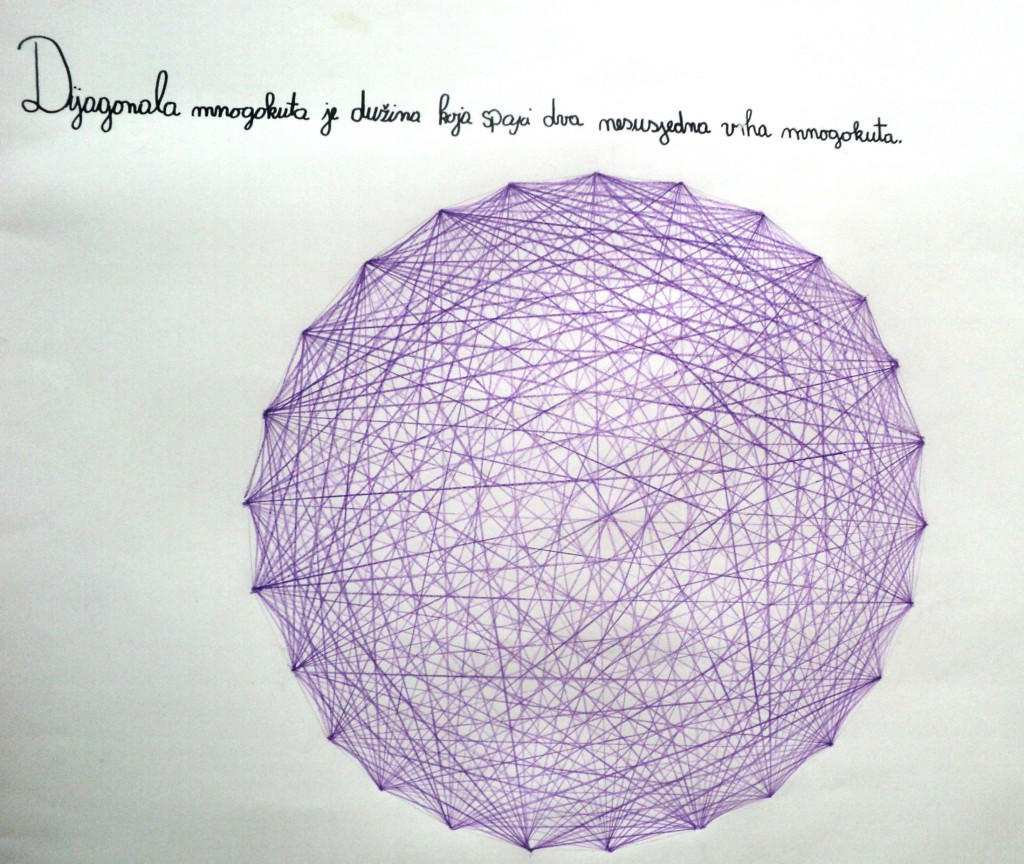 Dijagonala mnogokuta je dužina koja spaja dva nesusjedna vrha mnogokuta.